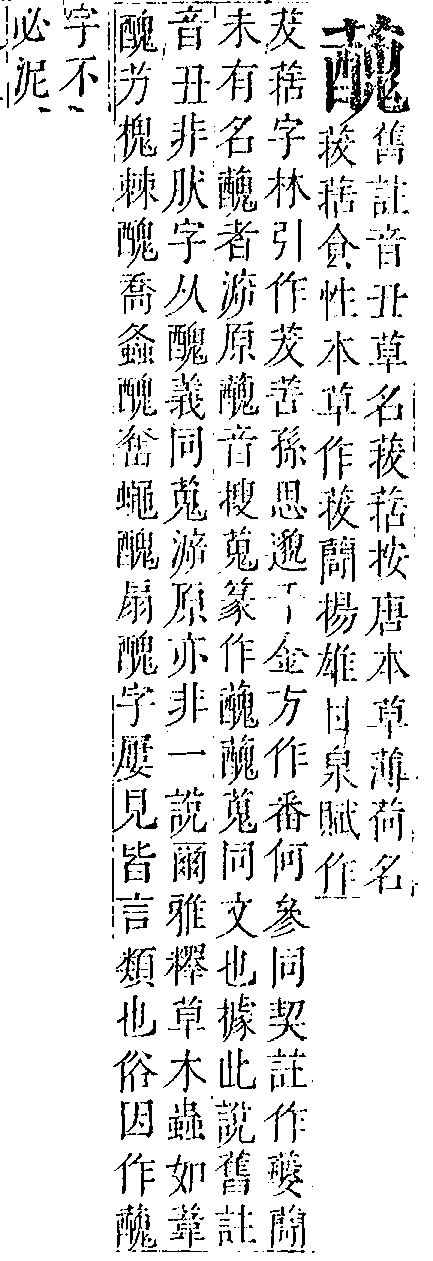 舊註音丑草名菝葀按唐本草薄荷名
菝葀食性本草作菝䕡揚雄甘泉賦作
茇葀字林引作茇苦孫思邈千金方作番何參同契註作䕡
未有名者泝原音搜蒐篆作蒐同文也據此說舊註
音丑非肰字从醜義同蒐泝原亦非一說爾雅釋草木蟲如葦
醜芀槐棘醜喬螽醜奮蠅醜扇醜字屢見皆言類也俗因作
字不
必泥